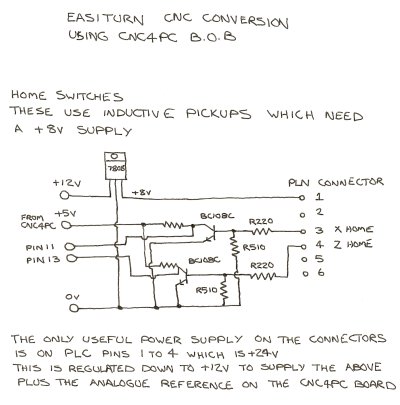 EASITURN CNC CONVERSION
USING CNC4PC B.O.B
HOME SWITCHES
THESE USE INDUCTIVE PICKUPS WHICH NEED
A +8V SUPPLY
7808
+12V
+8V
PLN CONNECTOR
1
+5V
FROM
CNC4PC
BC108C
R220
2
3 X HOME
PIN 11
PIN 13
BC108C
R510
R220
4 Z HOME
5
6
R510
0V
THE ONLY USEFUL POWER SUPPLY ON THE CONNECTORS
IS ON PLC PINS 1 TO 4 WHICH IS +24V
THIS IS REGULATED DOWN TO +12V TO SUPPLY THE ABOVE
PLUS THE ANALOGUE REFERENCE ON THE CNC4PC BOARD